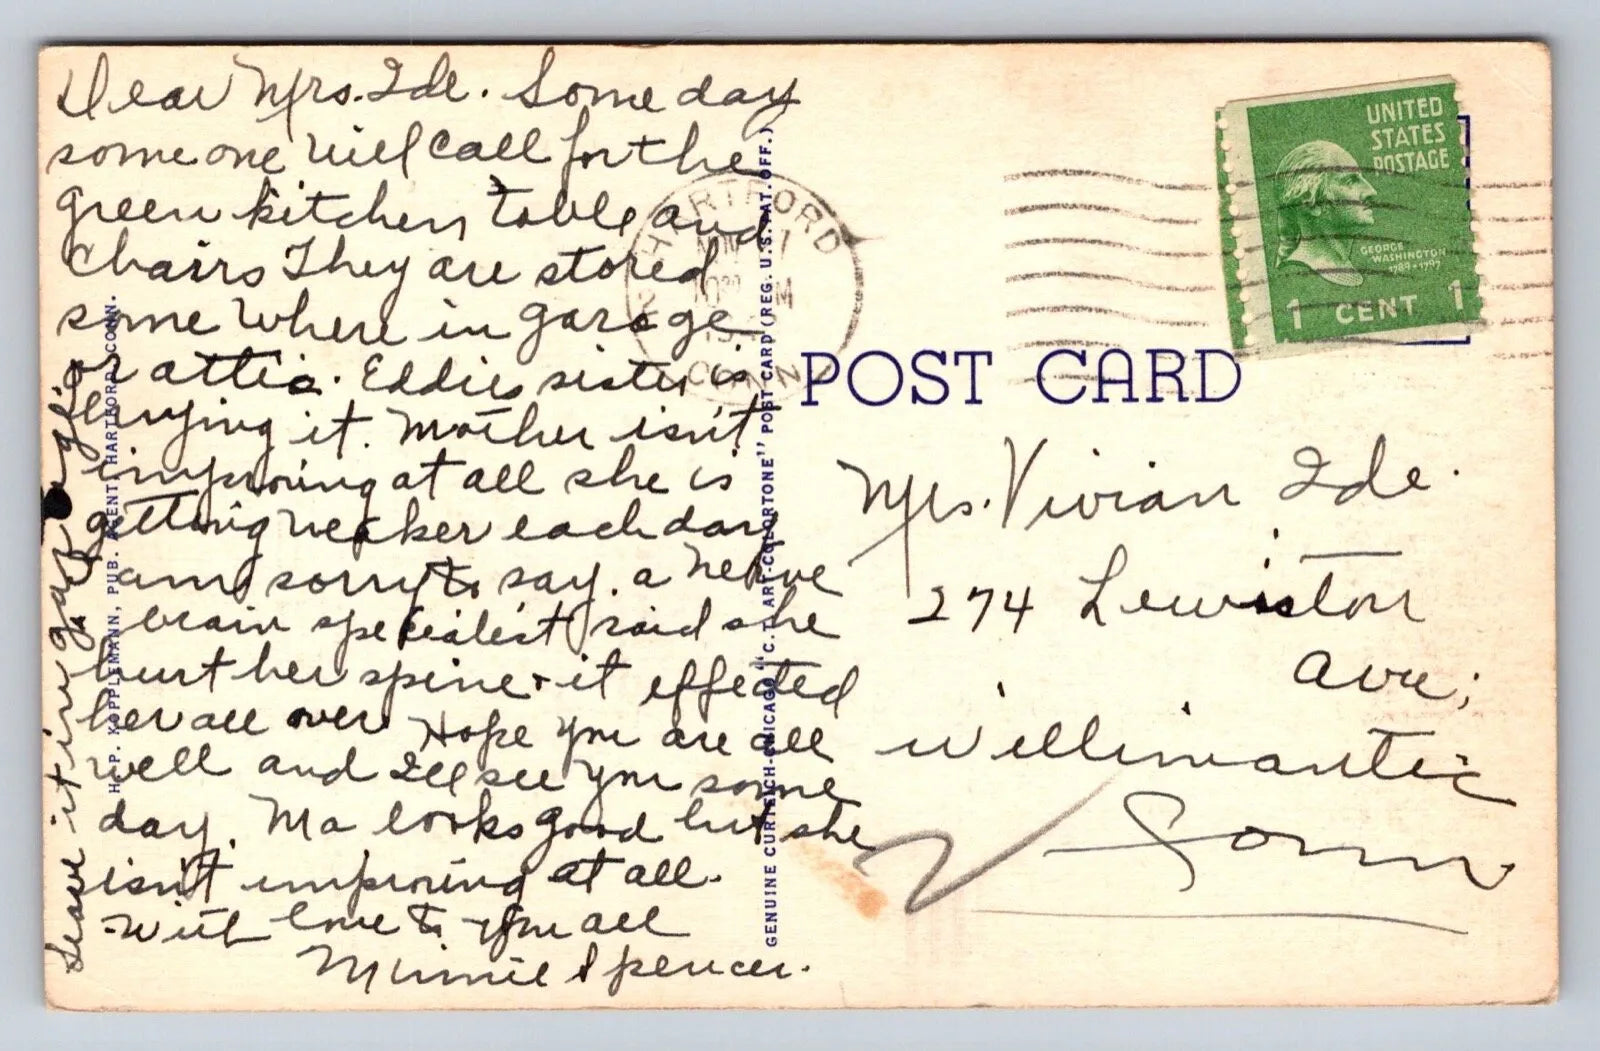 Dear Mrs. Ide. Some day
someone will call for the
green kitchen table and
Chairs They are stored
some where in garage
or attic. Eddies sister is
buying it. Mother isn't
improving at all she is
getting weaker each day
am sorry to say. a nerve
brain specialist said she
hurt her spine & it effected
her all over Hope you are all
well and I'll see you some
day. Ma looks good but she
isn't improving at all.
With love to you all
Minnie Spencer.
Leave it in
H. P. KOPPLEMANN, PUB. AGENT, HARTFORD, CONN.
GENUINE CURTEICH-CHICAGO "C. T. ART-COLORTONE" POST CARD (REG. U.S. PAT. OFF.)
HARTFORD
CONN
UNITED
STATES
POSTAGE
GEORGE
WASHINGTON
1789-1797
1 CENT 1
POST CARD
Mrs. Vivian Ide.
274 Lewiston
Ave;
Willimantic
Conn